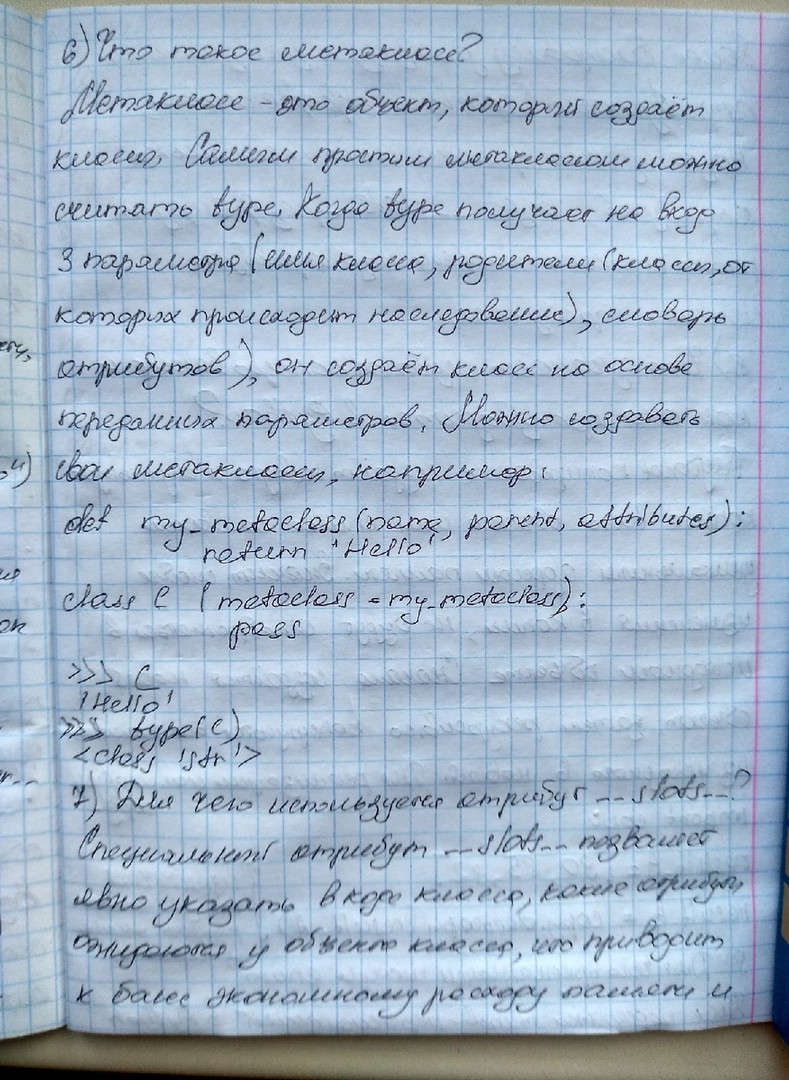 6) Что такое метакласс?
Метакласс - это объект, который создаёт
классы. Самым простым метаклассом можно
считать type. Когда type получает на вход
3 параметра (имя класса, родители (классы, от
которых происходит наследование), словарь
атрибутов), он создаёт класс на основе
переданных параметров. Можно создавать
свои метаклассы, например:
def my_metaclass(name, parent, attributes):
return 'Hello'
class C (metaclass = my_metaclass):
pass
>>> C
'Hello'
>>> type(C)
<class 'str'>
7) Для чего используется атрибут __slots__?
Специальный атрибут __slots__ позволяет
явно указать в коде класса, какие атрибуты
ожидаются у объекта класса, что приводит
к более экономному расходу памяти и